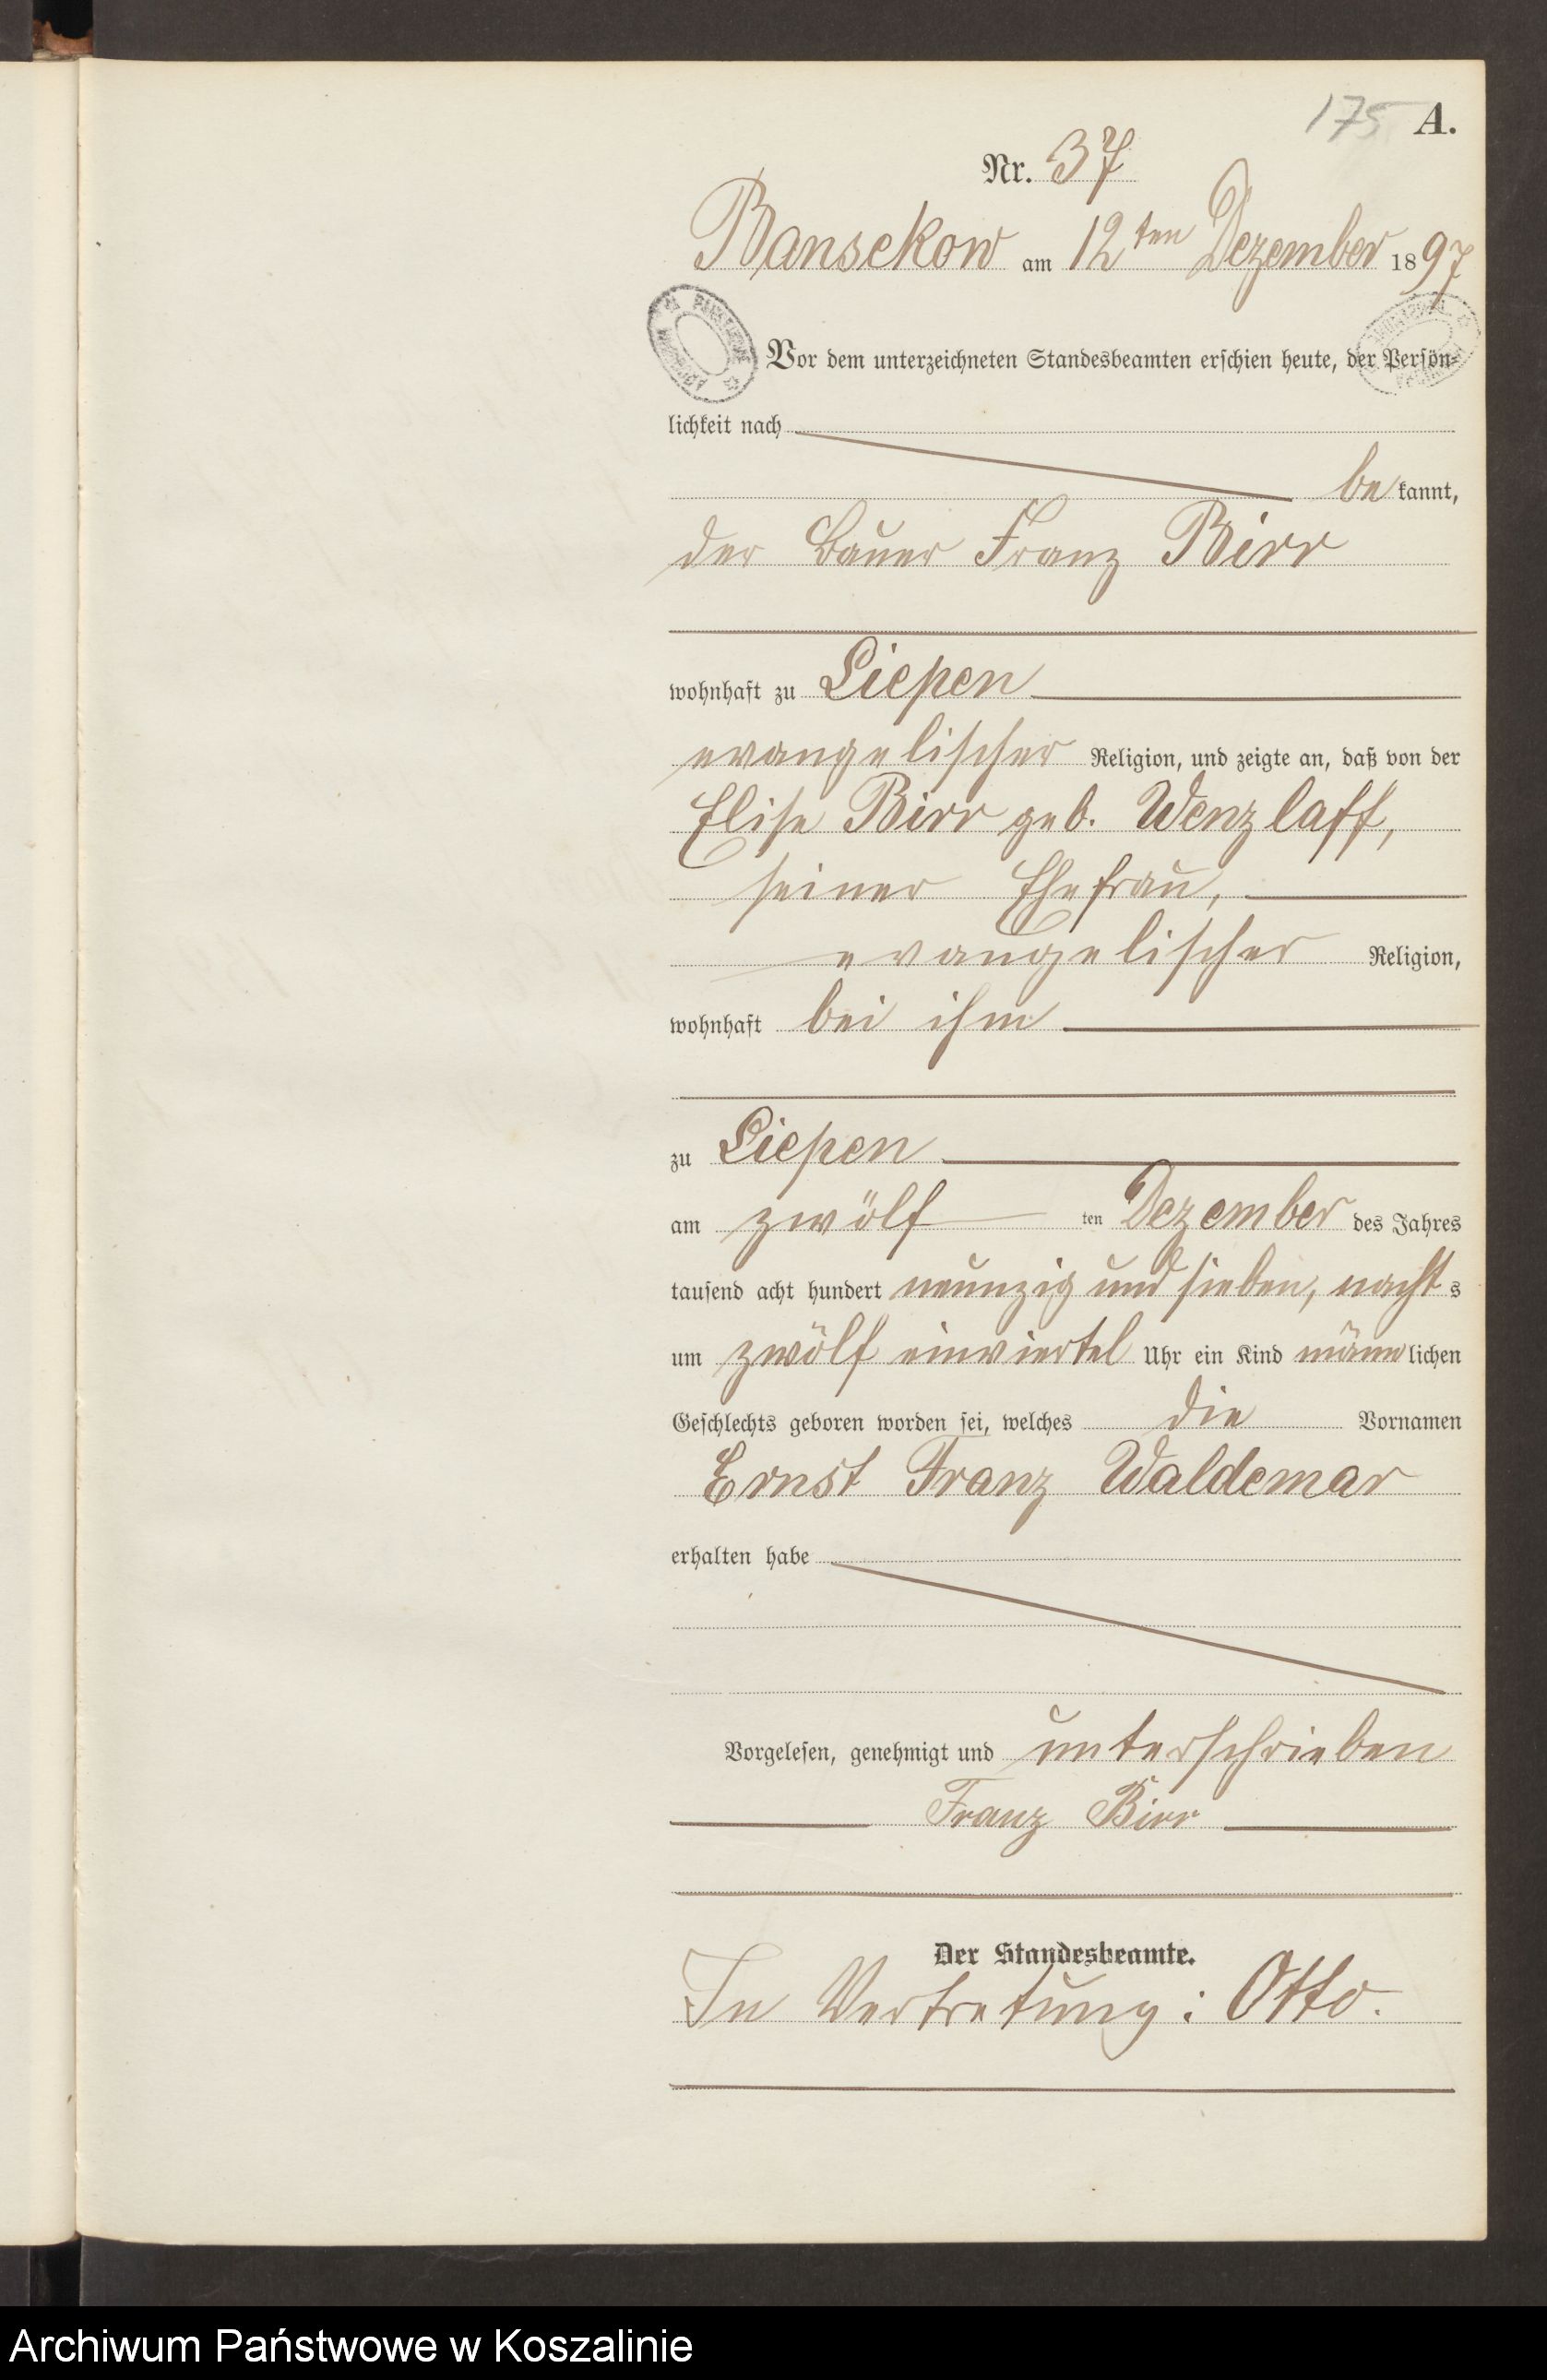 175 A.
Nr. 37
Bansekow am 12ten Dezember 1897
Vor dem unterzeichneten Standesbeamten erschien heute, der Persön-
lichkeit nach
bekannt,
der Bauer Franz Birr
wohnhaft zu Liepen
evangelischer Religion, und zeigte an, daß von der
Elise Birr geb. Wenzlaff,
seiner Ehefrau,
evangelischer Religion,
wohnhaft bei ihm
zu Liepen
am zwölf ten Dezember des Jahres
tausend acht hundert neunzig und sieben, nachts
um zwölf einviertel Uhr ein Kind männlichen
Geschlechts geboren worden sei, welches die Vornamen
Ernst Franz Waldemar
erhalten habe
Vorgelesen, genehmigt und unterschrieben
Franz Birr
Der Standesbeamte.
In Vertretung: Otto.
Archiwum Państwowe w Koszalinie